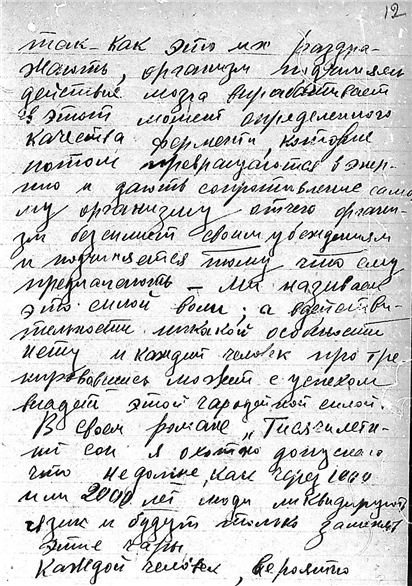 12
так-как это их раздра-
жають, организм подчиняясь
действие мозга вирабативает
в этот момент определенного
качества ферменти, которие
потом превращаются в энер-
гию и дають сопротивление само
му организму отчего органи-
зм безсилиет своим убеждениям
и подчиняется тому что ему
предназначають — ми називаем
это силой воли, а в действи-
тельности никакой особености
нету и каждий человек про тре
нировавшись может с успехом
владеть этой чародейной силой.
В своем романе „Тисячилетн-
ий сон я охотно допускаю
что не дольше, как через 1000
или 2000 лет люди ликвидируют
язик и будут только заменят
этие чары
Каждой человек, вероятно